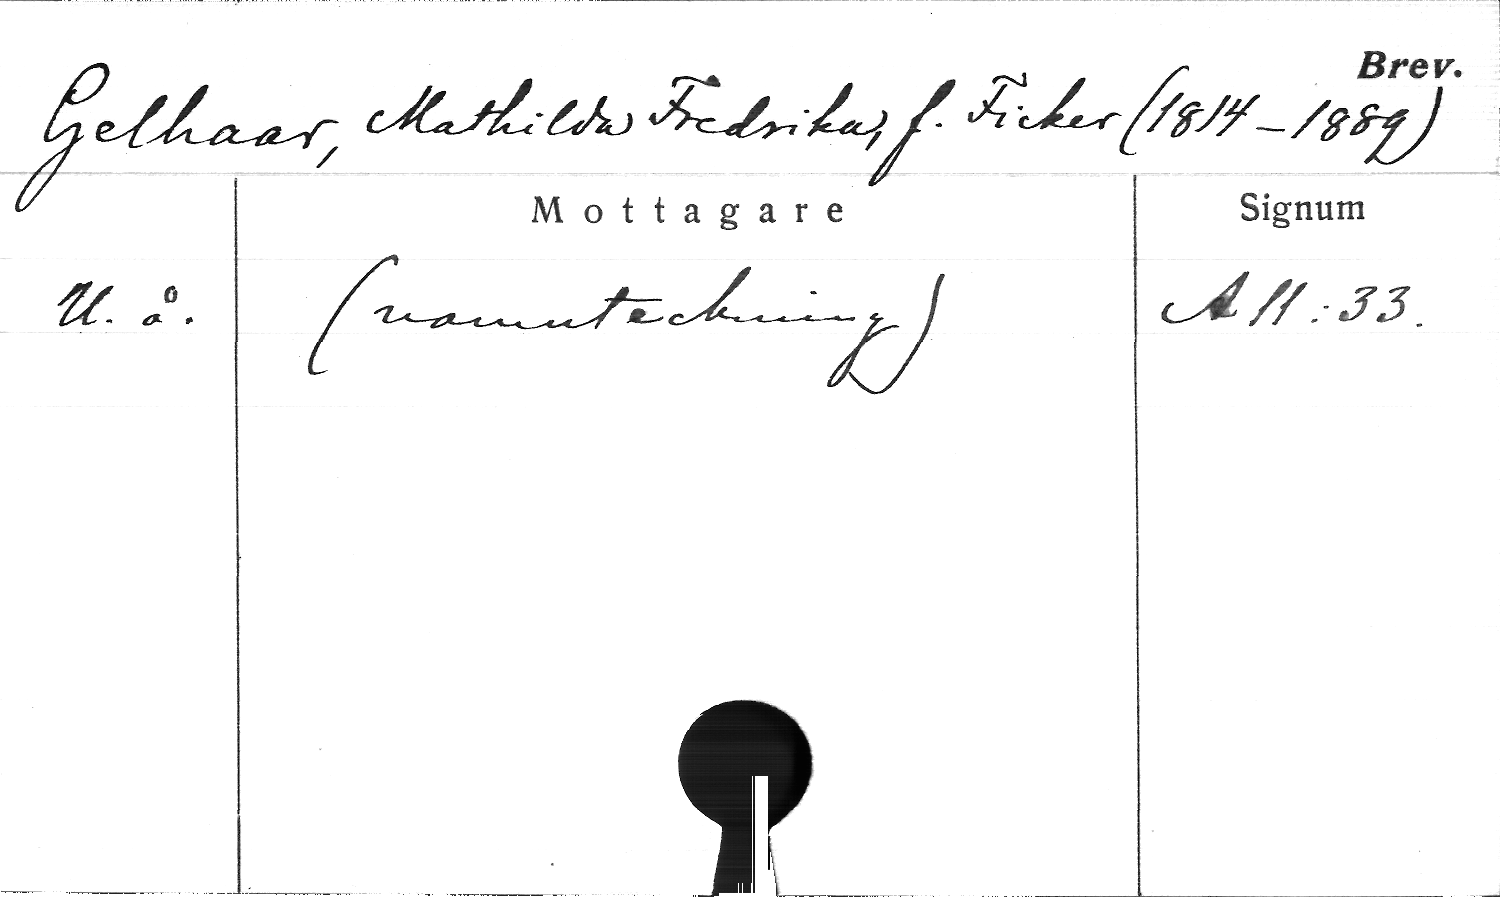 Brev.
Gelhaar, Mathilda Fredrika, f. Ficker (1814–1889)
Mottagare Signum
U. å. (namnteckning) A 11:33.